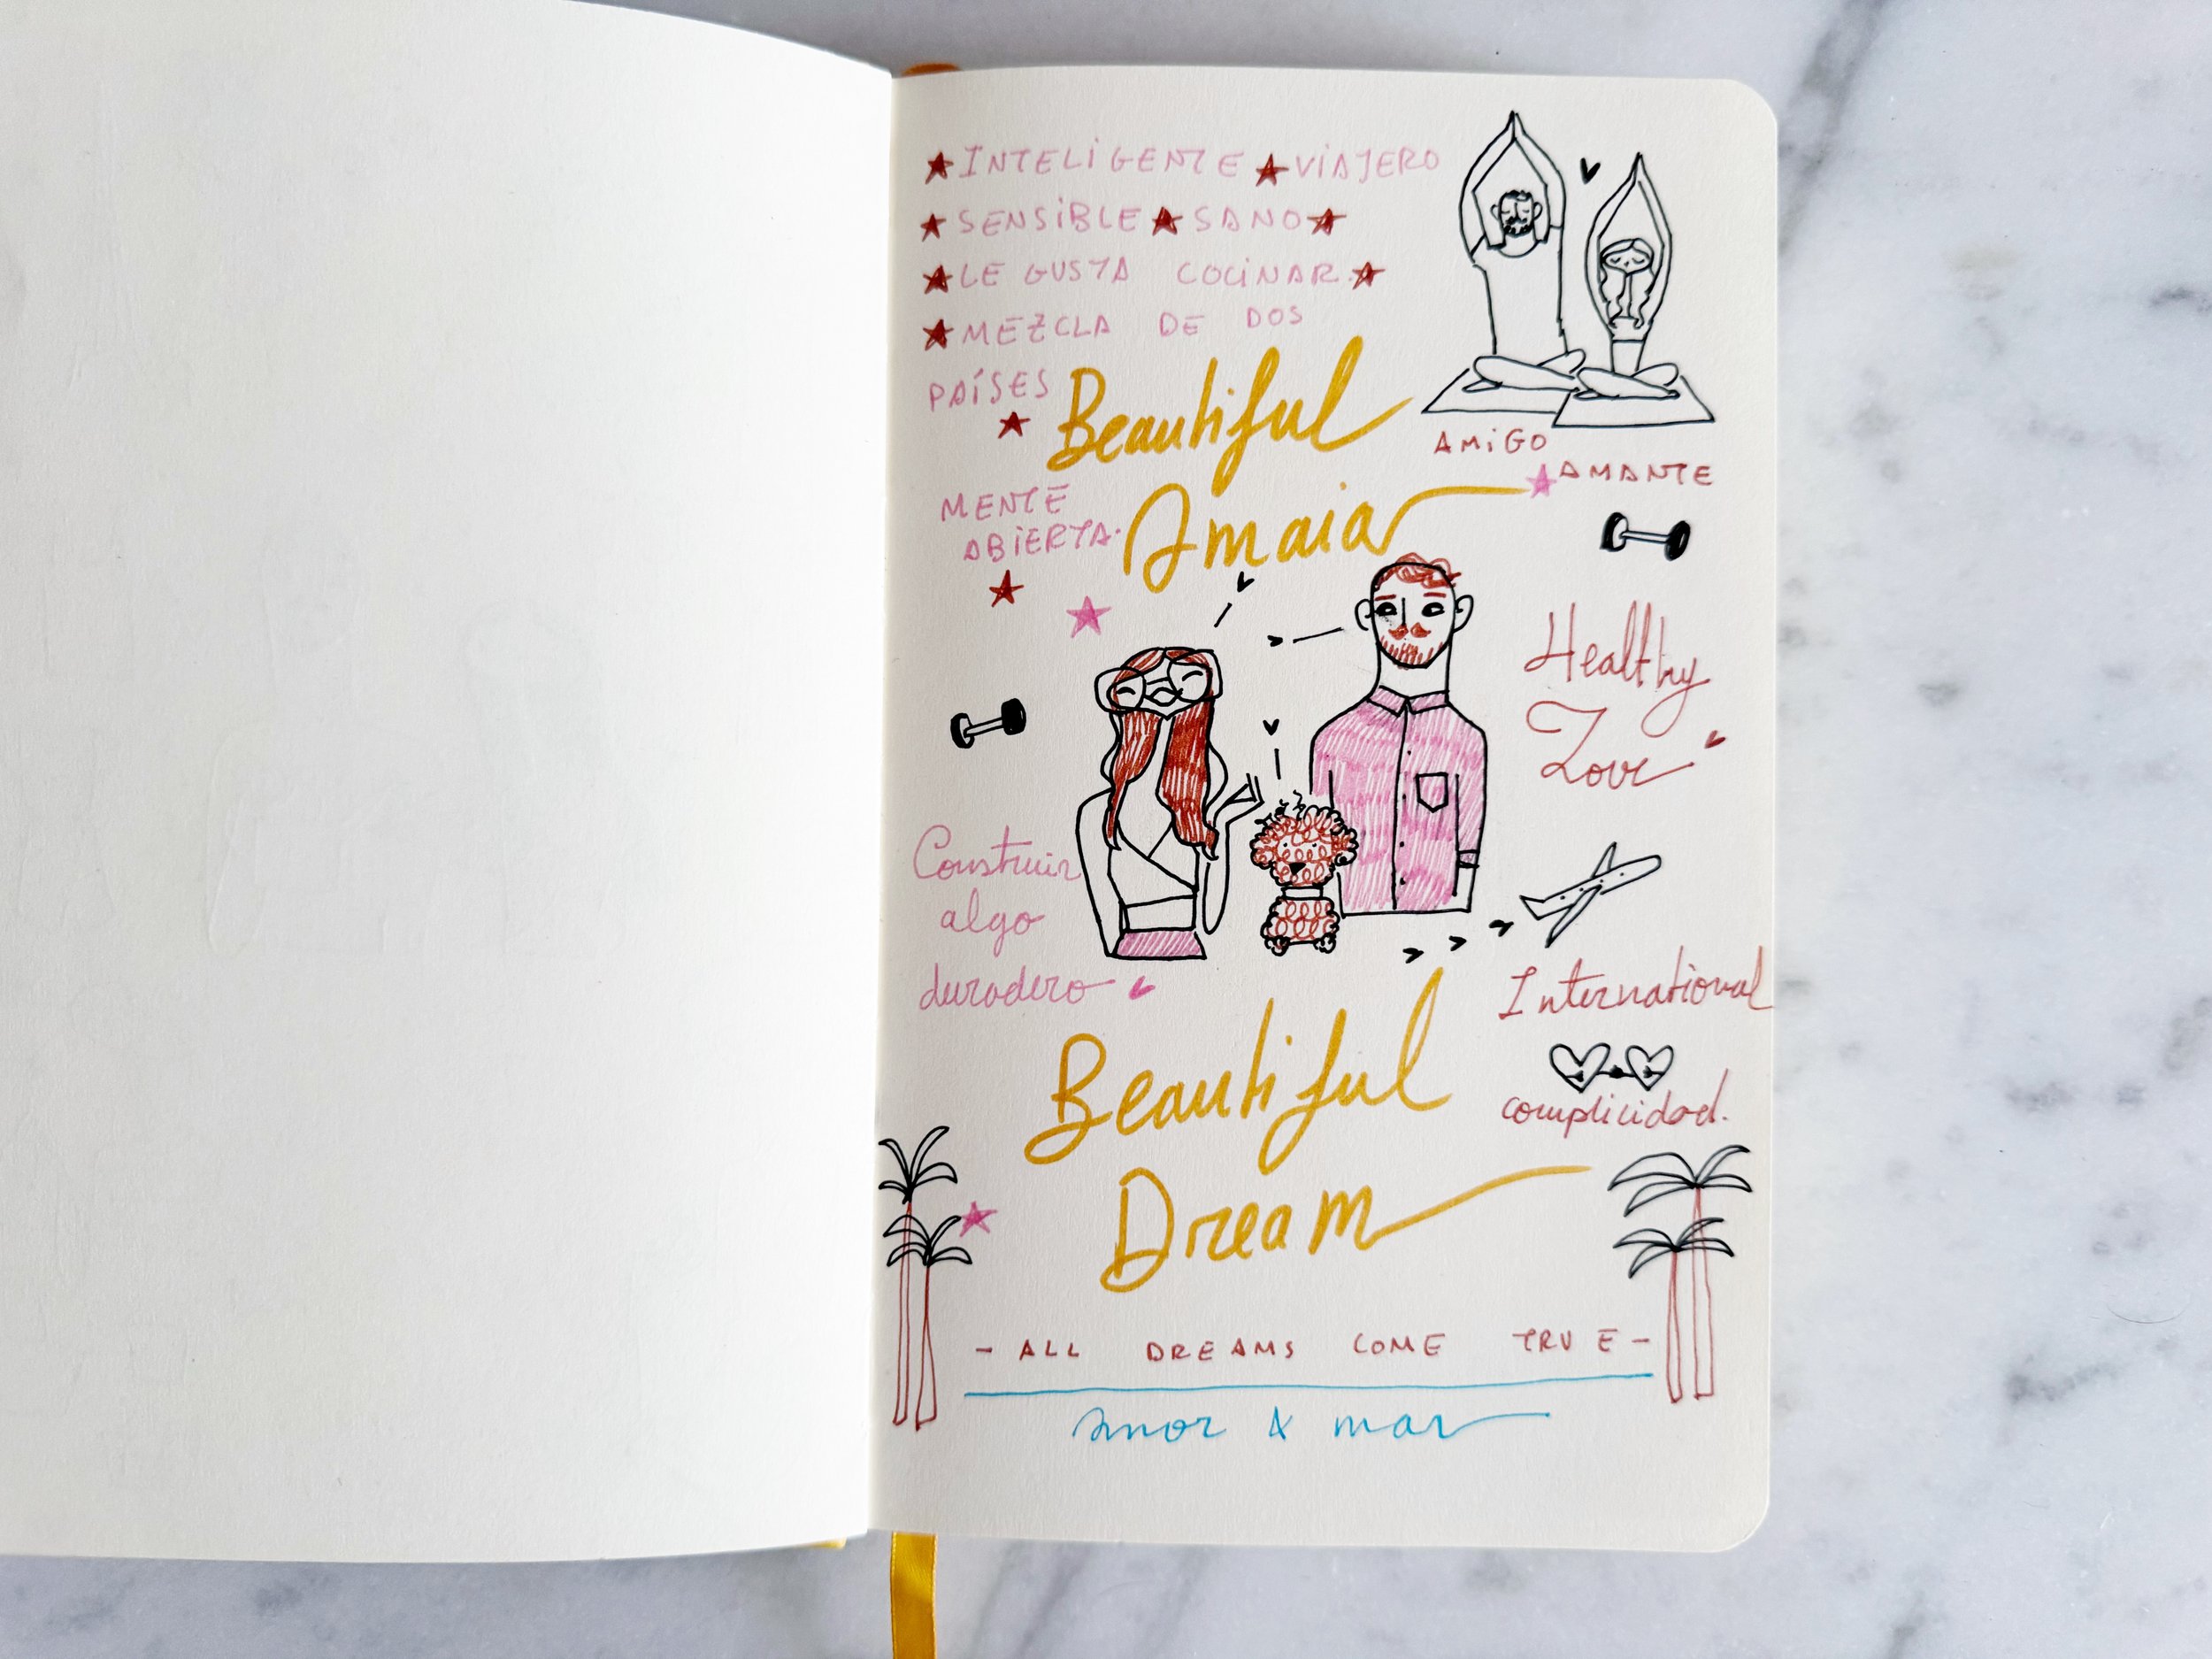 INTELIGENTE VIAJERO
SENSIBLE SANO
LE GUSTA COCINAR.
MEZCLA DE DOS
PAÍSES
Beautiful
AMIGO
AMANTE
MENTE
ABIERTA.
Amaia
Healthy
Love
Construir
algo
duradero
International
complicidad.
Beautiful
Dream
- ALL DREAMS COME TRUE -
Amor & mar